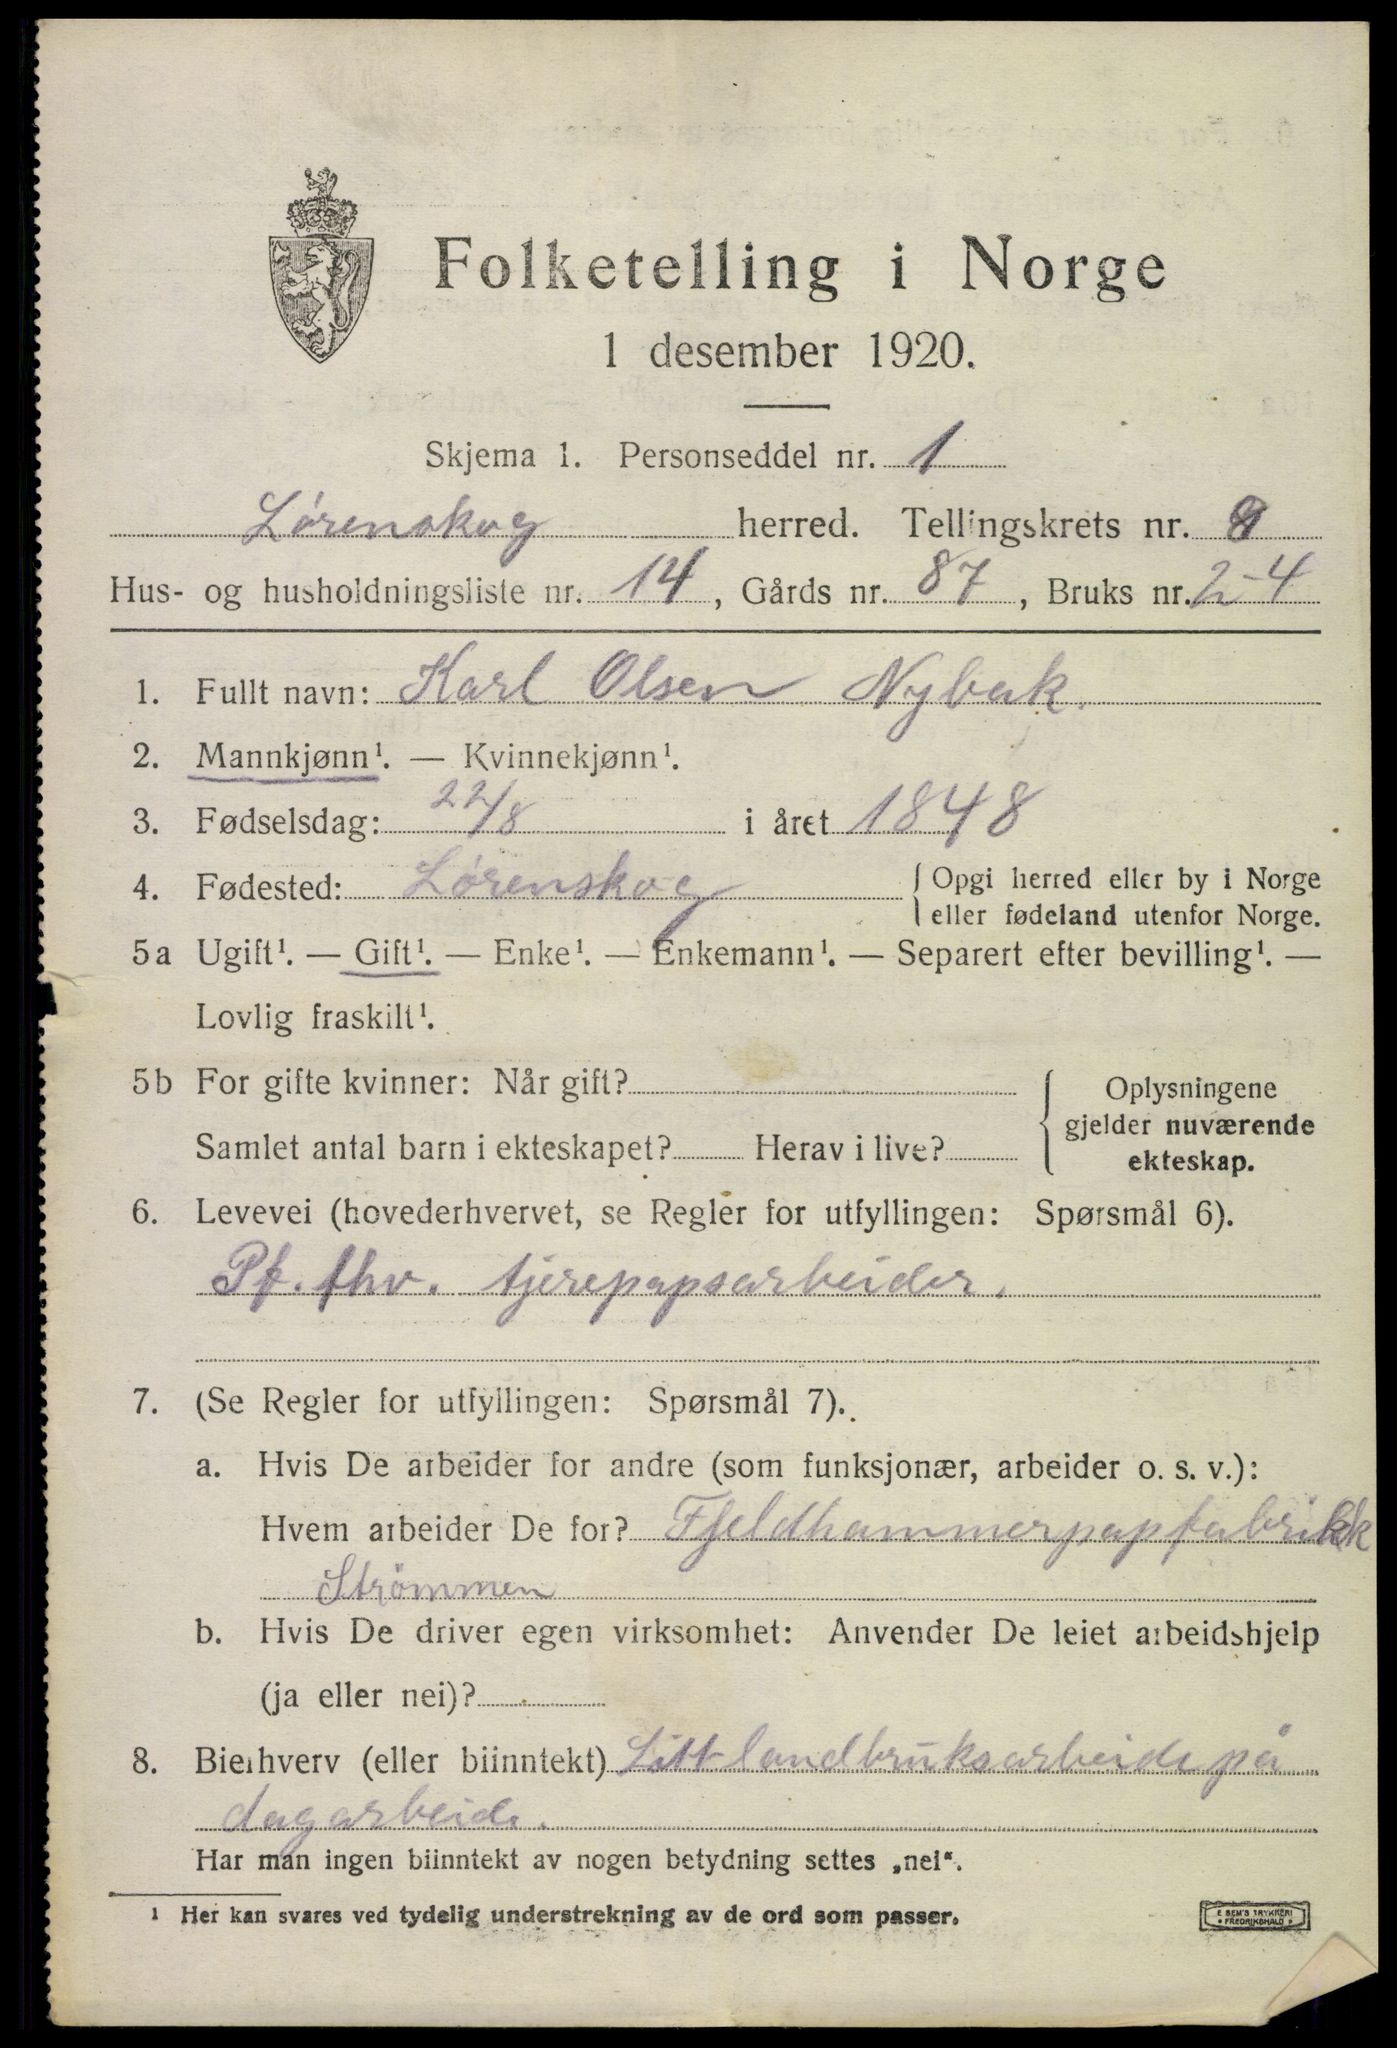 Folketelling i Norge
1 desember 1920.
Skjema 1. Personseddel nr. 1
Lørenskog herred. Tellingskrets nr.
Hus- og husholdningsliste nr. 14, Gårds nr. 87, Bruks nr. 2-4
1. Fullt navn: Karl Olsen Nybak.
2. Mannkjønn¹. — Kvinnekjønn¹.
3. Fødselsdag: 22/8 i året 1848
4. Fødested: Lørenskog { Opgi herred eller by i Norge
eller fødeland utenfor Norge.
5a Ugift¹. — Gift¹. — Enke¹. — Enkemann¹. — Separert efter bevilling¹. —
Lovlig fraskilt¹.
5b For gifte kvinner: Når gift?
Samlet antal barn i ekteskapet? Herav i live?
{ Oplysningene
gjelder nuværende
ekteskap.
6. Levevei (hovederhvervet, se Regler for utfyllingen: Spørsmål 6).
Pf. fhv. tjerepapsarbeider.
7. (Se Regler for utfyllingen: Spørsmål 7).
a. Hvis De arbeider for andre (som funksjonær, arbeider o. s. v.):
Hvem arbeider De for? Fjeldhammerpapfabrikk
Strömmen
b. Hvis De driver egen virksomhet: Anvender De leiet arbeidshjelp
(ja eller nei)?
8. Bierhverv (eller biinntekt) Litt landbruksarbeide på
dagarbeide.
Har man ingen biinntekt av nogen betydning settes „nei“.
1 Her kan svares ved tydelig understrekning av de ord som passer.
E SEM'S TRYKKERI
FREDRIKSHALD